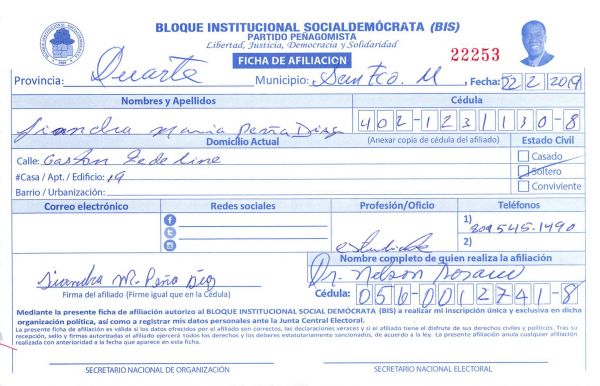 BLOQUE INSTITUCIONAL SOCIALDEMÓCRATA (BIS)
PARTIDO PEÑAGOMISTA
Libertad, Justicia, Democracia y Solidaridad
FICHA DE AFILIACION
22253
Provincia: Duarte Municipio: San Fco. M Fecha: 22 2 2019
Nombres y Apellidos Cédula
Siandra Maria Peña Diaz 402-1231130-8
Domicilio Actual (Anexar copia de cédula del afiliado) Estado Civil
Calle: Gaston Casado
#Casa / Apt. / Edificio: 19 Soltero
Barrio / Urbanización: Conviviente
Correo electrónico Redes sociales Profesión/Oficio Teléfonos
1) 809 545-1490
estudiante 2)
Nombre completo de quien realiza la afiliación
Siandra M. Peña Diaz Dr. Nelson Rosario
Firma del afiliado (Firme igual que en la Cédula) Cédula: 056-0012741-8
Mediante la presente ficha de afiliación autorizo al BLOQUE INSTITUCIONAL SOCIAL DEMÓCRATA (BIS) a realizar mi inscripción única y exclusiva en dicha
organización política, así como a registrar mis datos personales ante la Junta Central Electoral.
La presente ficha de afiliación es válida si los datos ofrecidos por el afiliado son correctos, las declaraciones veraces y si el afiliado tiene el disfrute de sus derechos civiles y políticos. Tras su
recepción, sello y firmas autorizadas el afiliado ejercerá todos los derechos y los deberes estatutariamente sancionados, de acuerdo a la ley. La presente afiliación anula cualquier afiliación
realizada con anterioridad a la fecha que aparece en esta ficha.
SECRETARIO NACIONAL DE ORGANIZACIÓN SECRETARIO NACIONAL ELECTORAL